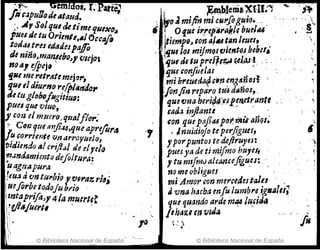 Gemidos. I. Parte
su capullo de ataud.
Ay Sol que de ti me quexo,
pues de tu Oriente, al Occaso
todas tres edades passo
de niño, mancebo, y viejo:
no ay espejo
que me retrate mejor,
que el diurno resplandor
de tu globo fugitiuo:
pues que viuo,
y con el muero, qual flor.
Con que ansias, que apresura
su corriente vn arroyuelo,
pidiendo al cristal de el yelo
mandamiento de soltura:
agua pura
vn turbio y veraz rio,
se sorbe todo su brio
y a la muerte
7
yo
Emblema XII.
yo à mi fin mi curso guio.
O que irreparable buelas
tiempo, con alas tan leues,
que los mismos vientos beues,
que de tu
que consuelas
mi breuedad con engaños
son sin reparo tus daños,
que vna herida es penetrante
cada instante
con que passas por mis años.
Inuidioso te persigues,
y por puntos te destruyes:
pues ya de ti mismo huyes,
y tu mismo alcance sigues:
no me obligues
mi Amor con mercedes tales
à vna hacha en su lumbre iguales;
que quando arde mas lucida
se haze en vida
su
5
6
© Biblioteca Nacional de España
© Biblioteca Nacional de España